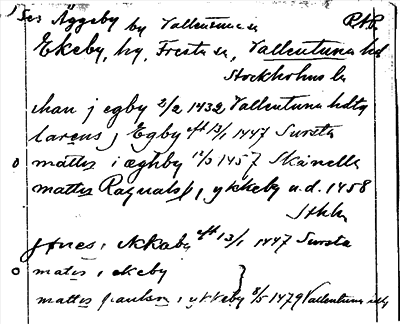 Ses Äggeby by Vallentuna sn RAP.
Ekeby, by, Fresta sn, Vallentuna hd
Stockholms län
chan j egby 2/2 1432 Vallentuna hdtg
larens j Egby eft 13/1 1447 Sursta
o mattes i æghby 12/3 1457 Skånella
mattes Ragualds, i ykkeby u.d. 1458
Sthlm
jönes i Ækkaby eft 13/1 1447 Sursta
o mates i ekeby
mattes paulson i ykkeby 8/5 1479 Vallentuna